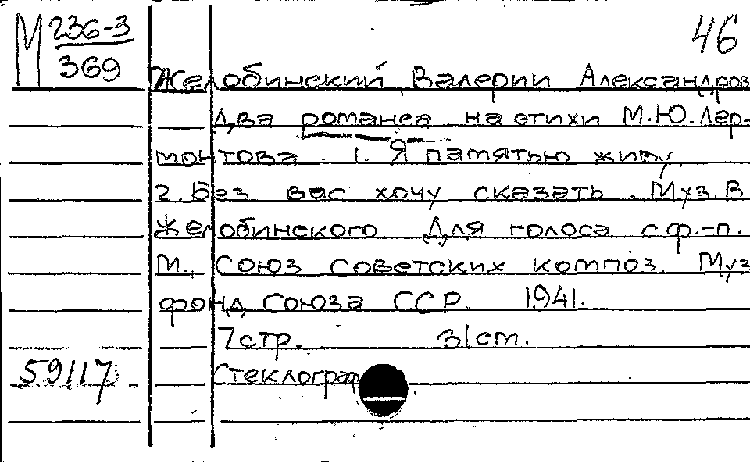 М 236-3
369
46
Желобинский Валерий Александров
Два романса на стихи М.Ю. Лер-
монтова. 1. Я памятью живу,
2. Без вас хочу сказать. Муз. В.
Желобинского Для голоса с ф.-п.
М., Союз советских композ. Муз
фонд Союза ССР. 1941.
7 стр. 31 cm.
59117 Стеклограф